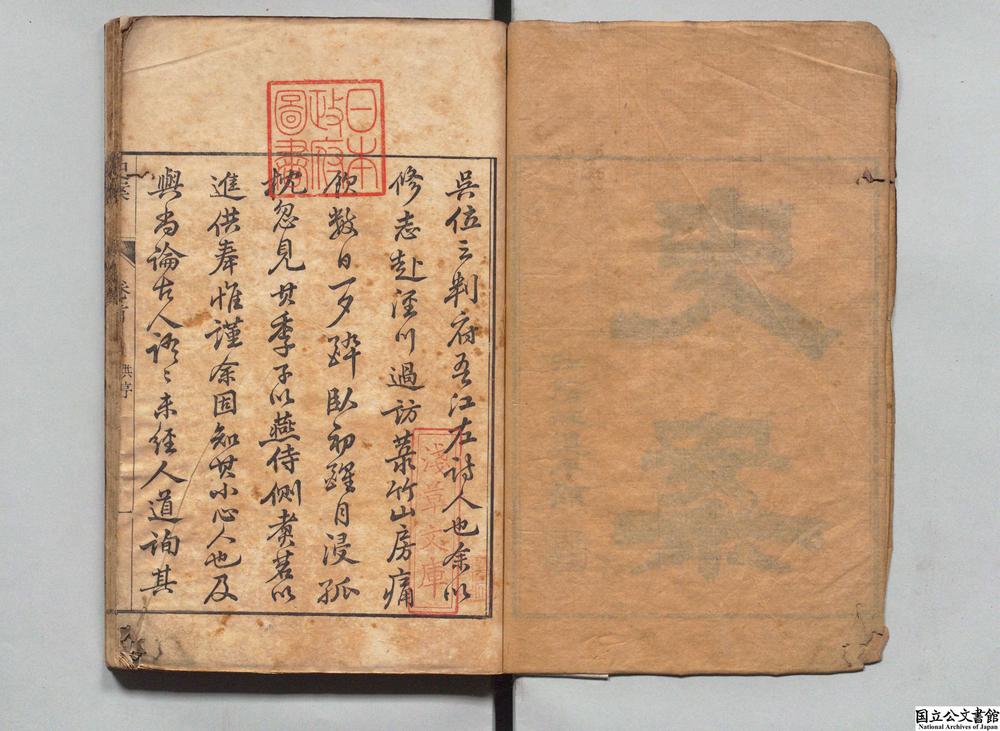 吳位三判府吾江右詩人也余以
修志赴涇川過訪菉竹山房痛
飲數日一夕醉臥初醒月浸孤
枕忽見其季子以燕侍側煑茗以
進供奉惟謹余固知其小心人也及
與尚論古人語〻未經人道詢其
史案
卷首
洪序
日本
政府
圖書
淺草文庫
史
案
国立公文書館
National Archives of Japan